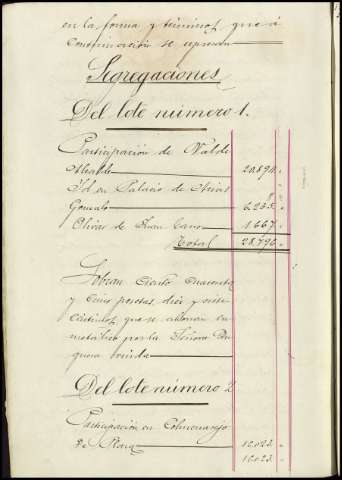 en la forma y términos que á
continuación se expresan
Segregaciones
Del lote número 1.
Participación de Valde
Alcalde 20.894 "
Id en Palacio de
Gonzalo 6.235 "
Olivar de Juan Cano 1.667 "
Total 28.796 "
Sobran ciento cuarenta
y cinco pesetas, diez y siete
céntimos que se abonan en
metálico por la Señora Du
quesa viuda
Del lote número 2
Participación en Colmenarejo
de 12.023 "
12.023 "